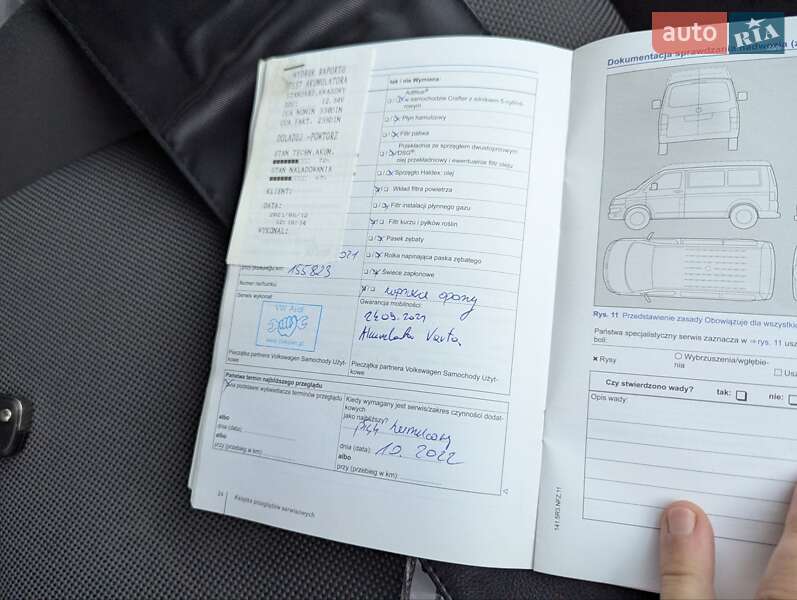 auto RIA
WYDRUK RAPORTU
TEST AKUMULATORA
STANDARD, KWASOWY
12.50V
CCA NOMIN
CCA FAKT.
DOLADUJ - POWTORZ
STAN TECHN.AKUM.
STAN NALADOWANIA
KLIENT:
DATA:
WYKONAL:
tak i nie Wymiana:
AdBlue®
w samochodzie Crafter z silnikiem 5-cylind-
rowym
Płyn hamulcowy
Filtr paliwa
Przekładnia ze sprzęgłem dwustopniowym
DSG®
olej przekładniowy i ewentualnie filtr oleju
Sprzęgło Haldex: olej
Wkład filtra powietrza
Filtr instalacji płynnego gazu
Filtr kurzu i pyłków roślin
Pasek zębaty
Rolka napinająca paska zębatego
Świece zapłonowe
2021
przy przebiegu km: 155823
Numer rachunku:
opony
Serwis wykonał:
Gwarancja mobilności
24.09.2021
Varta.
Pieczątka partnera Volkswagen Samochody Użyt-
kowe
Pieczątka partnera Volkswagen Samochody Użyt-
kowe
Państwa termin najbliższego przeglądu
Na podstawie wyświetlacza terminów przeglądu
albo
dnia (data):
albo
przy (przebieg w km)
Kiedy wymagany jest serwis/zakres czynności dodat-
kowych
jako najbliższy:
płyn hamulcowy
dnia (data): 10.2022
albo
przy (przebieg w km)
24 Książka przeglądów serwisowych
Dokumentacja sprawdzania nadwozia (
Rys. 11 Przedstawienie zasady Obowiązuje dla wszystki
Państwa specjalistyczny serwis zaznacza w ⇒ rys. 11 usz
boli:
x Rysy
Wybrzuszenia/wgłębie-
nia
Usz
Czy stwierdzono wady? tak: nie:
Opis wady:
141.5R3.NFZ.11